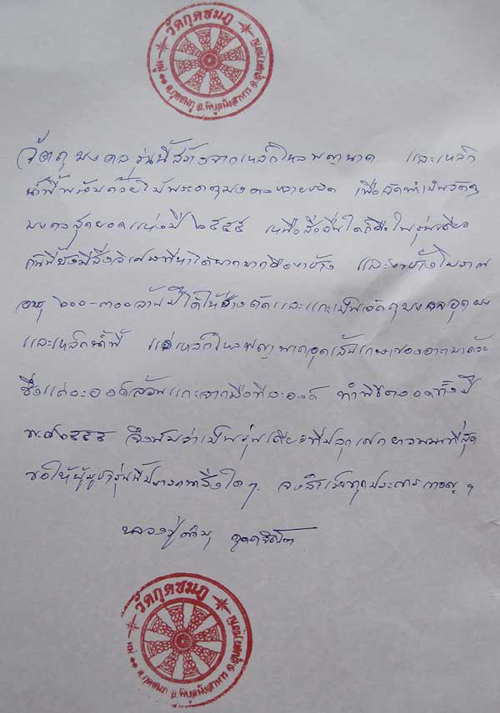 วัดกุดชมภู
หมู่ ๑๑ ต.กุดชมภู อ.พิบูลมังสาหาร จ.อุบลราชธานี
วัตถุมงคลรุ่นนี้สร้างจากเหล็กไหลพญานาค และเหล็ก
น้ำพี้พร้อมด้วย เพื่อจัดทำเป็นวัตถุ
มงคลสุดยอดแห่งปี ๒๕๕๔ เหนือสิ่งอื่นใดก็คือในรุ่นเดียว
กันนี้ยังมีสิ่งวิเศษที่หาได้ยาก และงาช้างโบราณ
อายุ ๒๐๐-๓๐๐ ล้านปี ได้ให้ช่างตัดและแกะเป็นวัตถุมงคลอุดผง
และเหล็กน้ำพี้ แร่เหล็กไหลพญานาคอุดเส้นเกษาของอาตมาด้วย
ซึ่งแต่ละองค์ล้วนแกะจากมือทีละองค์ ทำพิธีตลอดทั้งปี
พ.ศ.๒๕๕๔ จึงนับว่าเป็นรุ่นเดียวที่ปลุกเสกยาวนานที่สุด
ขอให้ผู้บูชารุ่นนี้ปรารถนาสิ่งใดๆ จงสำเร็จทุกประการ
หลวงปู่คำบุ คุตฺตจิตฺโต
วัดกุดชมภู
หมู่ ๑๑ ต.กุดชมภู อ.พิบูลมังสาหาร จ.อุบลราชธานี